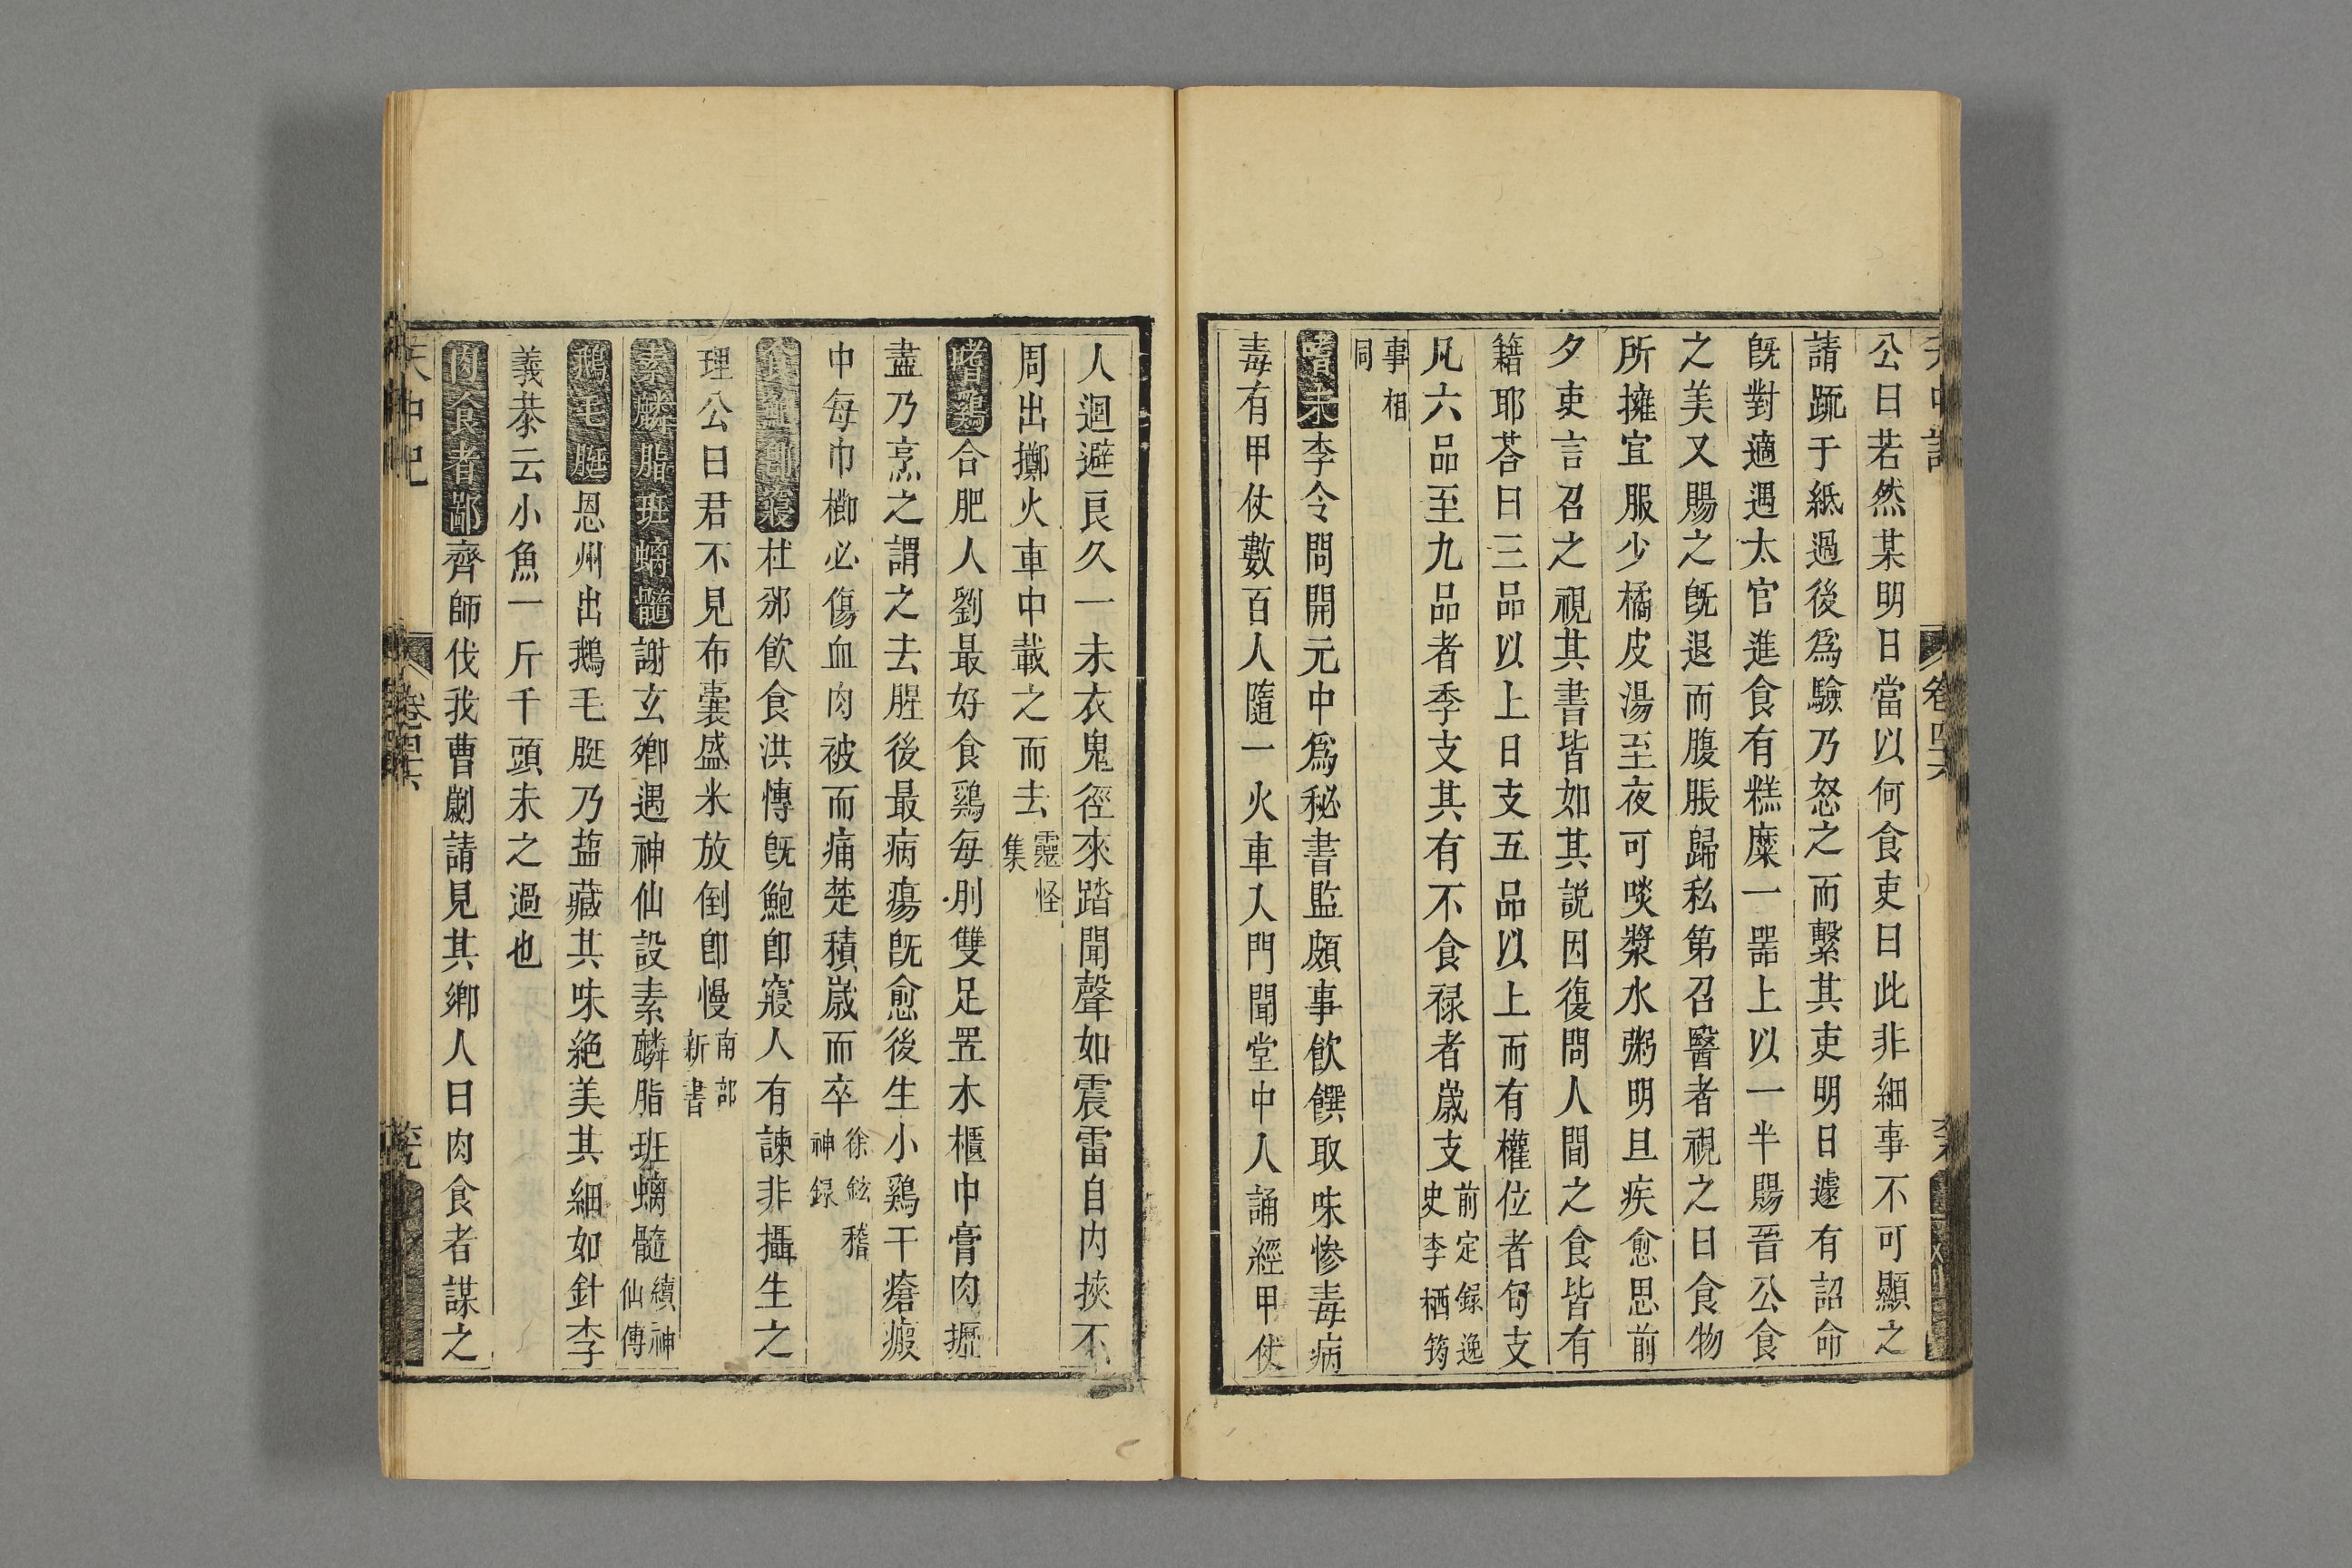 公曰若然某明日當以何食吏曰此非細事不可顯之
請䟽于紙過後爲驗乃怒之而繫其吏明日遽有詔命
旣對適遇太官進食有糕糜一器上以一半賜晉公食
之美又賜之旣退而腹脹歸私第召醫者視之曰食物
所擁宜服少橘皮湯至夜可啖漿水粥明旦疾愈思前
夕吏言召之視其書皆如其説因復問人間之食皆有
籍耶荅曰三品以上日支五品以上而有權位者旬支
凡六品至九品者季支其有不食禄者歲支前定録逸史李栖筠
事相同
嗜味李令問開元中爲秘書監頗事飲饌取味慘毒病
毒有甲仗數百人隨一火車入門聞堂中人誦經甲仗
人迴避良久一朱衣鬼徑來踏開聲如震雷自内挾不
周出擲火車中載之而去靈怪集
嗜鷄合肥人劉最好食鷄每刖雙足置木櫃中膏肉攊
盡乃烹之謂之去腥後最病瘍旣愈後生小鷄干瘡瘢
中每巾櫛必傷血肉被而痛楚積歲而卒徐鉉稽神録
杜邠飲食洪慱旣飽卽寢人有諫非攝生之
理公曰君不見布囊盛米放倒卽慢南部新書
素麟脂班螭髓謝玄鄉遇神仙設素麟脂班螭髓續神仙傳
鵝毛脡恩州出鵝毛脡乃葢藏其味絶美其細如針李
義恭云小魚一斤千頭未之過也
肉食者鄙齊師伐我曹劌請見其鄉人曰肉食者謀之
天中記
卷四十六